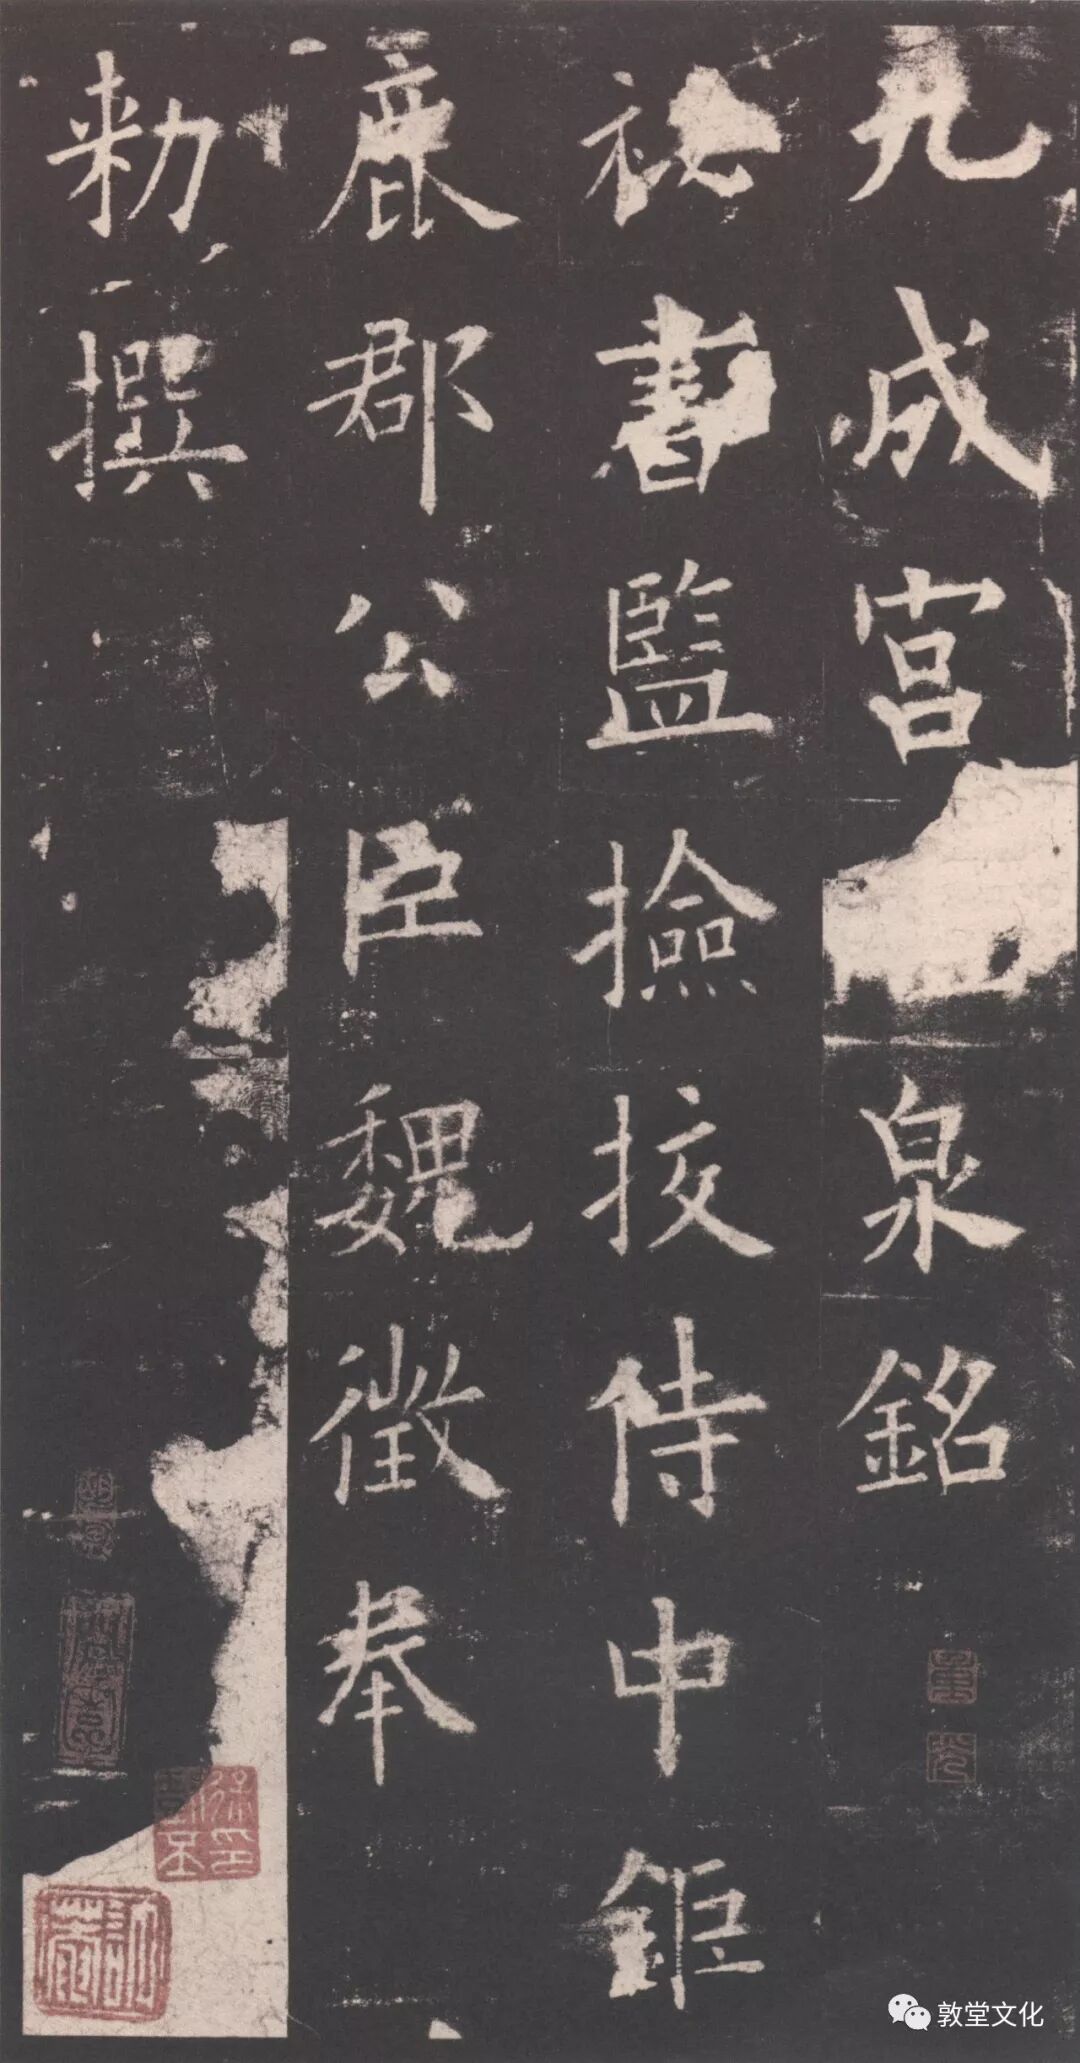 九成宫泉銘
祕書監撿挍侍中鉅
鹿郡公臣魏徵奉
勑撰
敦堂文化